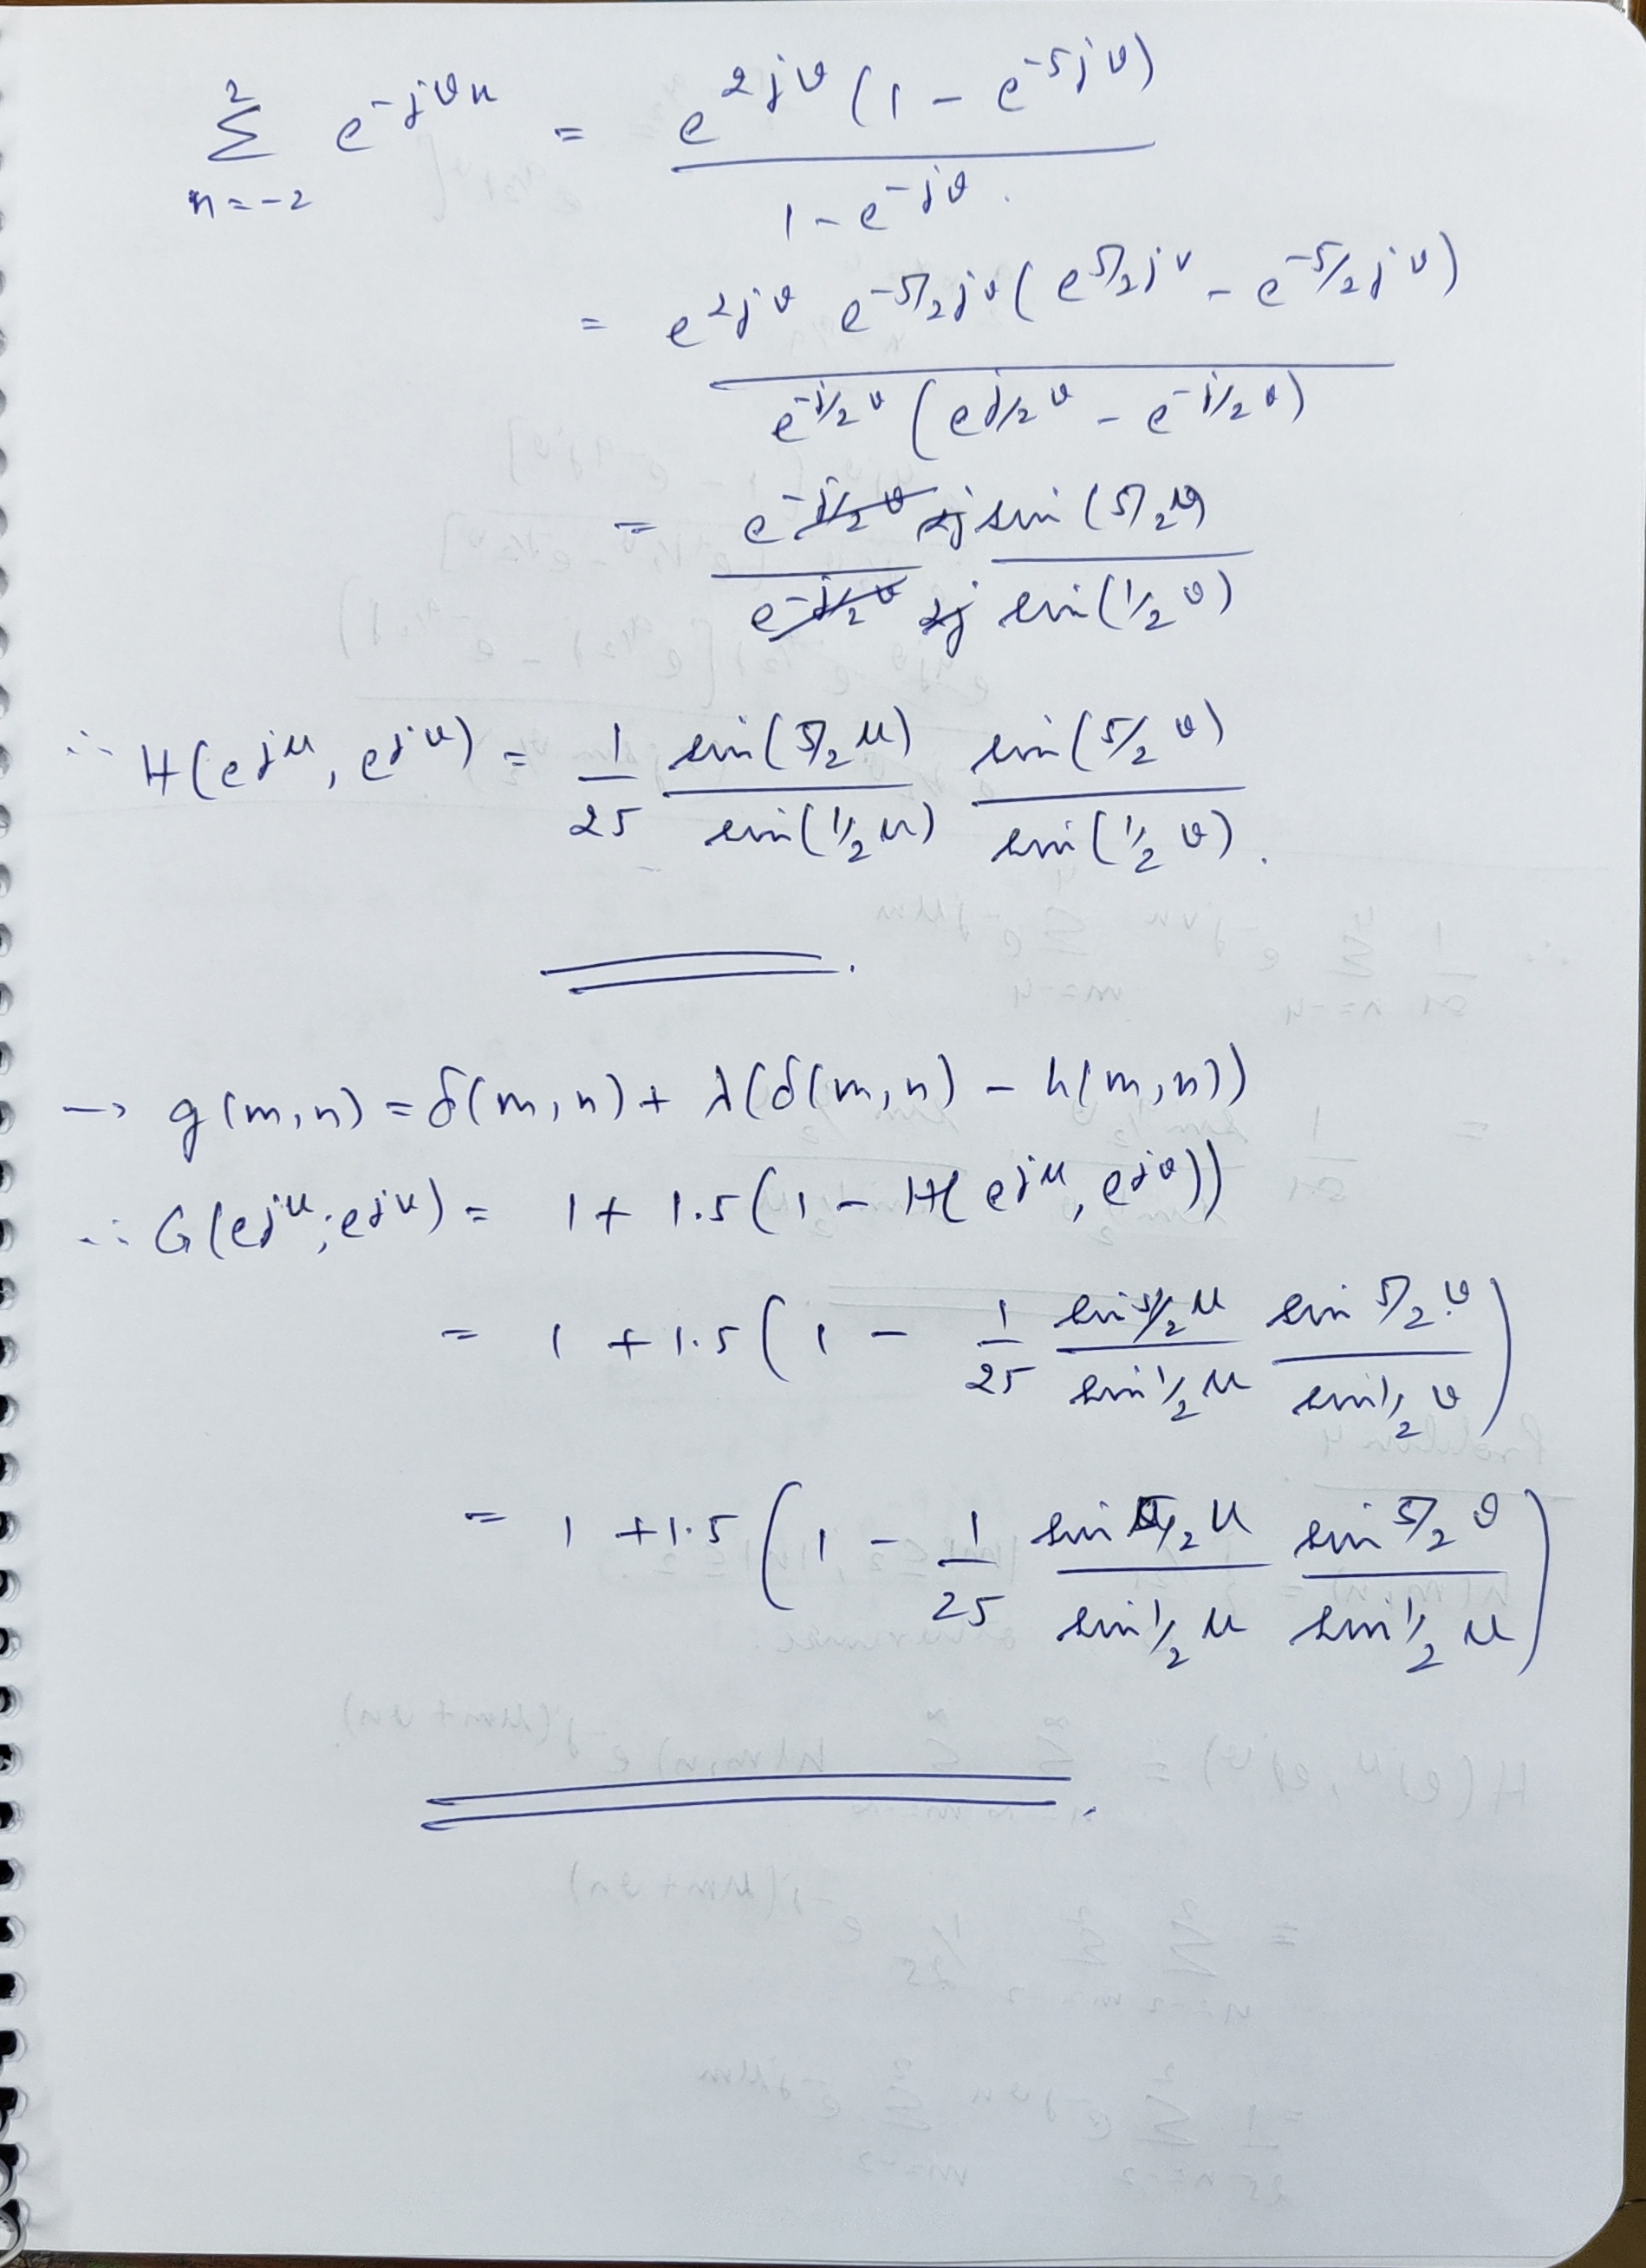 2
Σ e^{-jυn} = e^{2jυ} (1 - e^{-5jυ}) / 1 - e^{-jυ}.
n = -2
= e^{2jυ} e^{-5/2jυ} ( e^{5/2jυ} - e^{-5/2jυ} ) / e^{-j/2υ} ( e^{j/2υ} - e^{-j/2υ} )
= e^{-j/2υ} 2j sin (5/2υ) / e^{-j/2υ} 2j sin (1/2υ)
∴ H(e^{jμ}, e^{jυ}) = 1/25 sin(5/2μ) / sin(1/2μ) sin(5/2υ) / sin(1/2υ).
→ g(m,n) = δ(m,n) + λ(δ(m,n) - h(m,n))
∴ G(e^{jμ}, e^{jυ}) = 1 + 1.5 (1 - H(e^{jμ}, e^{jυ}))
= 1 + 1.5 ( 1 - 1/25 sin 5/2μ / sin 1/2μ sin 5/2υ / sin 1/2υ )
= 1 + 1.5 ( 1 - 1/25 sin 5/2μ / sin 1/2μ sin 5/2υ / sin 1/2μ )